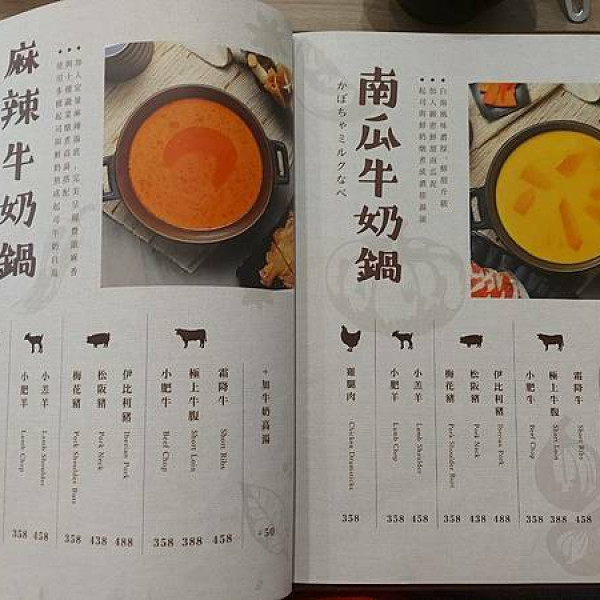 麻辣牛奶鍋
+加牛奶高湯
$50
霜降牛 Short Ribs 458
極上牛腹 Short Loin 388
小肥牛 Beef Chop 358
伊比利豬 Iberian Pork 488
松阪豬 Pork Neck 438
梅花豬 Pork Shoulder Butt 358
小羔羊 Lamb Shoulder 458
小肥羊 Lamb Chop 358
南瓜牛奶鍋
かぼちゃミルクなべ
霜降牛 Short Ribs 458
極上牛腹 Short Loin 388
小肥牛 Beef Chop 358
伊比利豬 Iberian Pork 488
松阪豬 Pork Neck 438
梅花豬 Pork Shoulder Butt 358
小羔羊 Lamb Shoulder 458
小肥羊 Lamb Chop 358
雞腿肉 Chicken Drumsticks 358